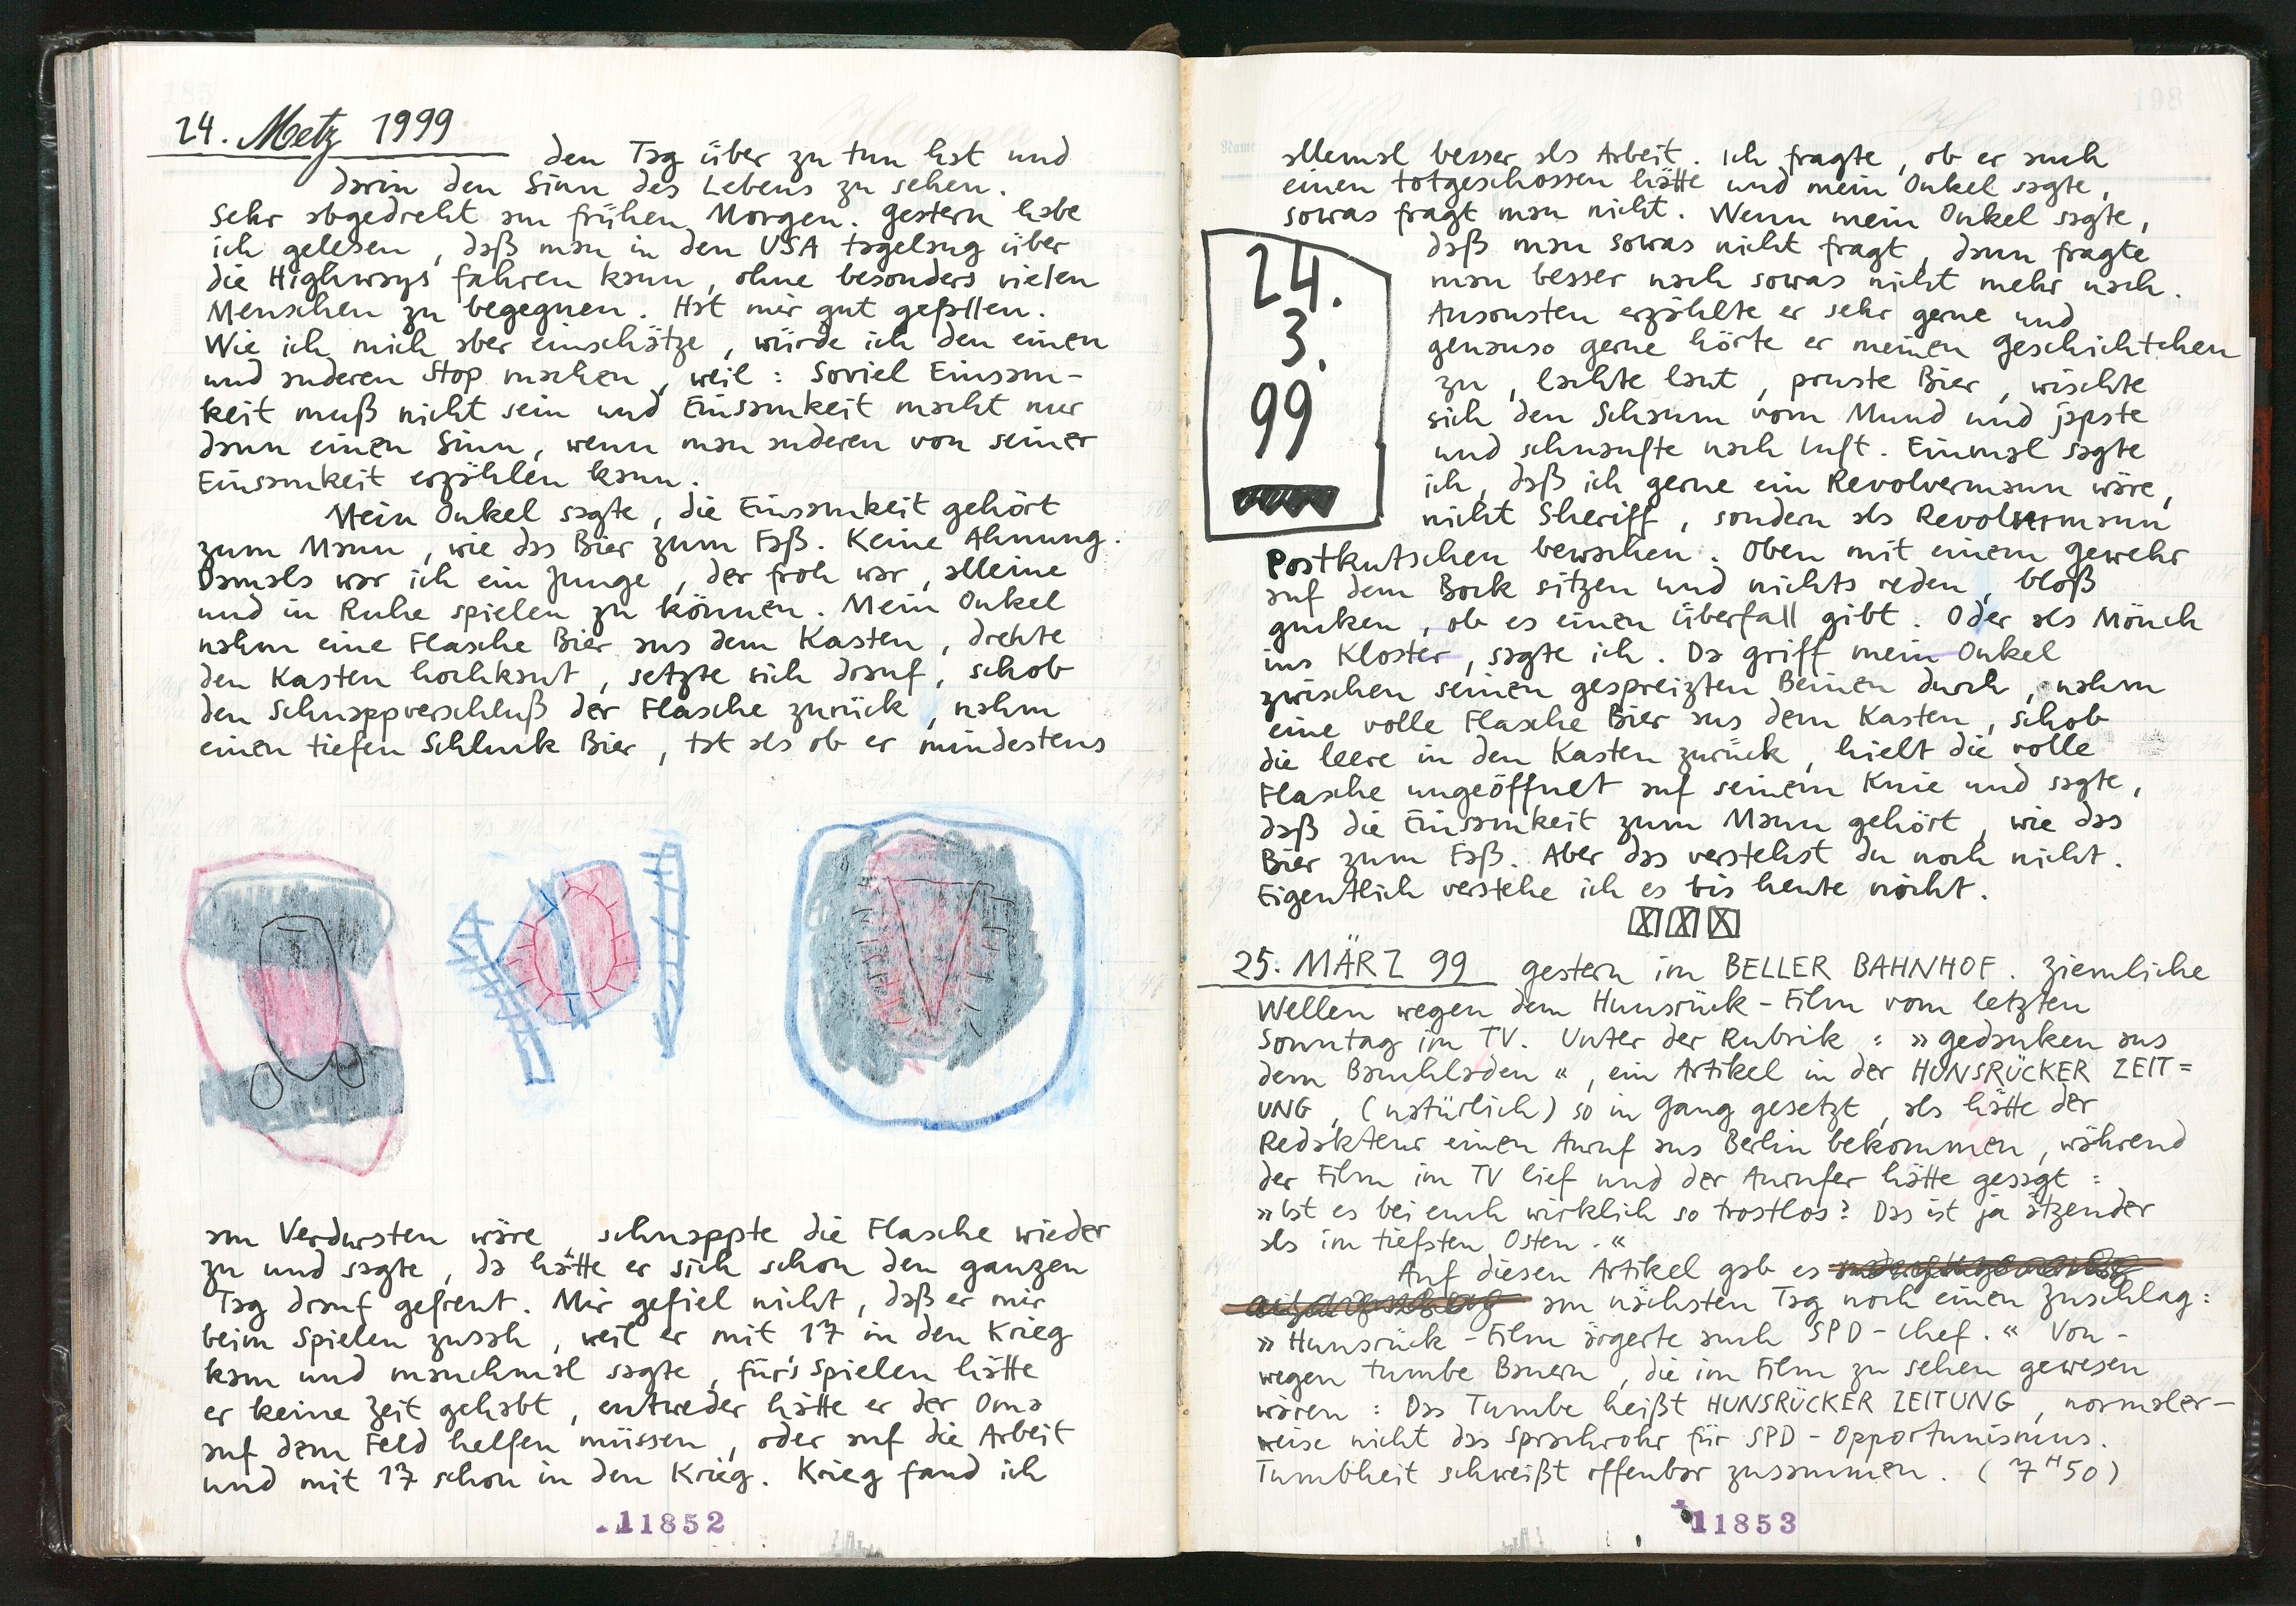 24. Metz 1999
den Tag über zu tun hat und
darin den Sinn des Lebens zu sehen.
Sehr abgedreht am frühen Morgen. Gestern habe
ich gelesen, daß man in den USA tagelang über
die Highways fahren kann, ohne besonders vielen
Menschen zu begegnen. Hat mir gut gefallen.
Wie ich mich aber einschätze, würde ich den einen
und anderen Stop machen, weil: Soviel Einsam-
keit muß nicht sein und Einsamkeit macht nur
dann einen Sinn, wenn man anderen von seiner
Einsamkeit erzählen kann.
Mein Onkel sagte, die Einsamkeit gehört
zum Mann, wie das Bier zum Faß. Keine Ahnung.
Damals war ich ein Junge, der froh war, alleine
und in Ruhe spielen zu können. Mein Onkel
nahm eine Flasche Bier aus dem Kasten, drehte
den Kasten hochkant, setzte sich drauf, schob
den Schnappverschluß der Flasche zurück, nahm
einen tiefen Schluck Bier, tat als ob er mindestens
am Verdursten wäre, schnappte die Flasche wieder
zu und sagte, da hätte er sich schon den ganzen
Tag drauf gefreut. Mir gefiel nicht, daß er mir
beim Spielen zusah, weil er mit 17 in den Krieg
kam und manchmal sagte, für's Spielen hätte
er keine Zeit gehabt, entweder hätte er der Oma
auf dem Feld helfen müssen, oder auf die Arbeit
und mit 17 schon in den Krieg. Krieg fand ich
11852
allemal besser als Arbeit. Ich fragte, ob er auch
einen totgeschossen hätte und mein Onkel sagte,
sowas fragt man nicht. Wenn mein Onkel sagte,
24.
3.
99
daß man sowas nicht fragt, dann fragte
man besser nach sowas nicht mehr nach.
Ansonsten erzählte er sehr gerne und
genauso gerne hörte er meinen Geschichtchen
zu, lachte laut, pruste Bier, wischte
sich den Schaum vom Mund und japste
und schnaufte nach Luft. Einmal sagte
ich, daß ich gerne ein Revolvermann wäre,
nicht Sheriff, sondern als Revolvermann
Postkutschen bewachen. Oben mit einem Gewehr
auf dem Bock sitzen und nichts reden, bloß
gucken, ob es einen Überfall gibt. Oder als Mönch
ins Kloster, sagte ich. Da griff mein Onkel
zwischen seinen gespreizten Beinen durch, nahm
eine volle Flasche Bier aus dem Kasten, schob
die leere in den Kasten zurück, hielt die volle
Flasche ungeöffnet auf seinem Knie und sagte,
daß die Einsamkeit zum Mann gehört, wie das
Bier zum Faß. Aber das verstehst du noch nicht.
Eigentlich verstehe ich es bis heute nicht.
25. MÄRZ 99 Gestern im BELLER BAHNHOF. Ziemliche
Wellen wegen dem Hunsrück-Film vom letzten
Sonntag im TV. Unter der Rubrik: »Gedanken aus
dem Bauchladen«, ein Artikel in der HUNSRÜCKER ZEIT=
UNG, (natürlich) so in Gang gesetzt, als hätte der
Redakteur einen Anruf aus Berlin bekommen, während
der Film im TV lief und der Anrufer hätte gesagt:
»Ist es bei euch wirklich so trostlos? Das ist ja ätzender
als im tiefsten Osten.«
Auf diesen Artikel gab es
am nächsten Tag noch einen Zuschlag:
»Hunsrück-Film ärgerte auch SPD-Chef.« Von-
wegen tumbe Bauern, die im Film zu sehen gewesen
wären: Das Tumbe heißt HUNSRÜCKER ZEITUNG, normaler-
weise nicht das Sprachrohr für SPD-Opportunismus.
Tumbheit schweißt offenbar zusammen. (7H50)
11853